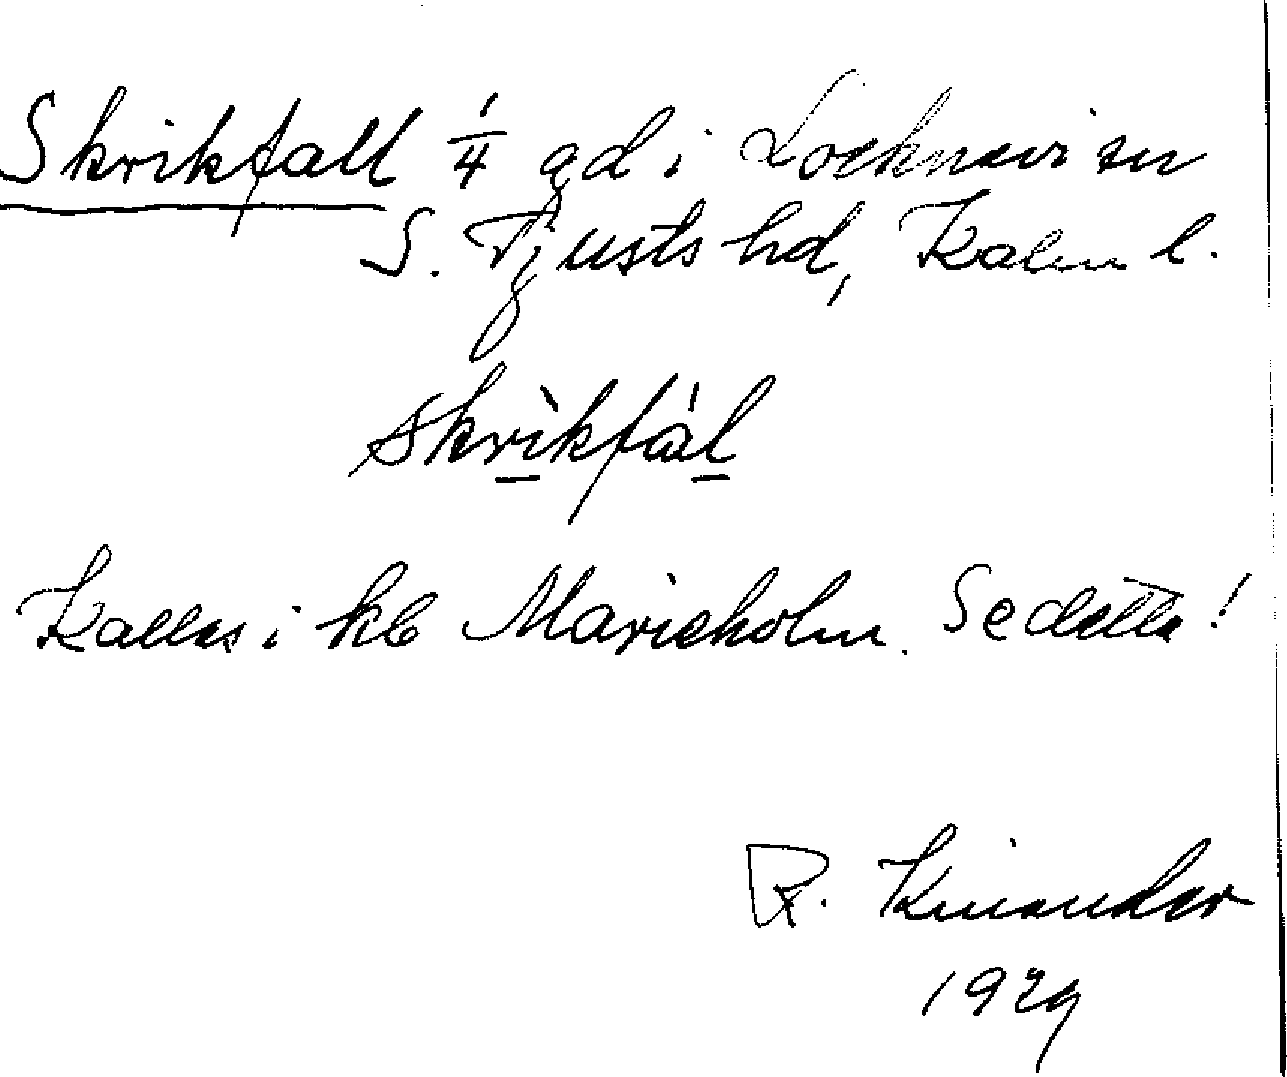 Skrikfall 1/4 gd i Locknevi sn
S. Tjusts hd, Kalm l.
skrìkfál
Kallas i kb Marieholm. Se detta!
R. Kinander
1929